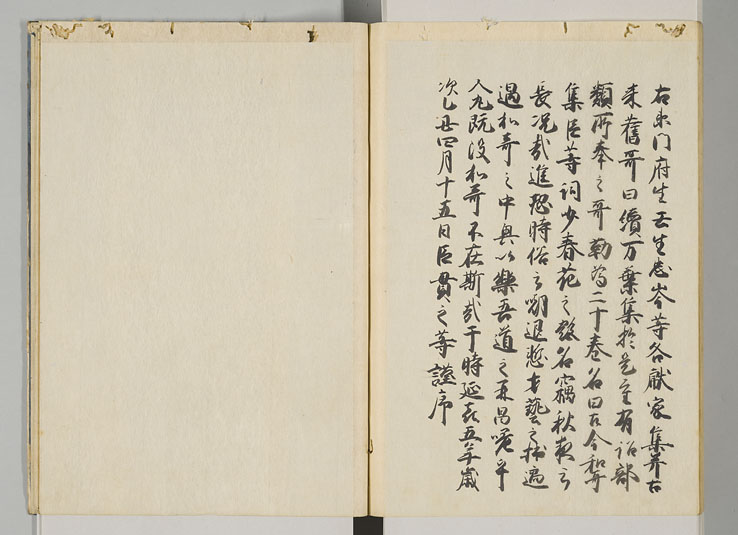 右衛门府生壬生忠岑等各献家集并古
来舊哥曰續万葉集於是重有詔部
類所奉之哥勒為二十巻名曰古今和哥
集臣等詞少春花之艶名竊秋夜之
長况哉進恐時俗之嘲退慙才藝之拙適
遇和哥之中興以樂吾道之再昌嗟乎
人丸既没和哥不在斯哉于時延喜五年歳
次乙丑四月十五日臣貫之等謹序